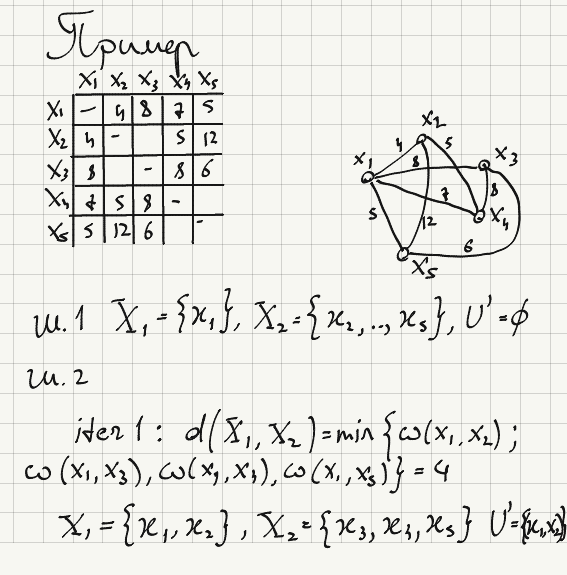 Пример
x₁ x₂ x₃ x₄ x₅
x₁ - 4 8 7 5
x₂ 4 - 5 12
x₃ 8 - 8 6
x₄ 7 5 8 -
x₅ 5 12 6 -
x₂
x₁ 4 5 x₃
8
7 8
5 12 x₄
6
x₅
ш.1 X₁ = {x₁}, X₂ = {x₂, .., x₅}, U' = ϕ
ш.2
iter 1 : d(X₁, X₂) = min {ω(x₁, x₂) ;
ω(x₁, x₃), ω(x₁, x₄), ω(x₁, x₅)} = 4
X₁ = {x₁, x₂}, X₂ = {x₃, x₄, x₅} U' = {(x₁, x₂)}